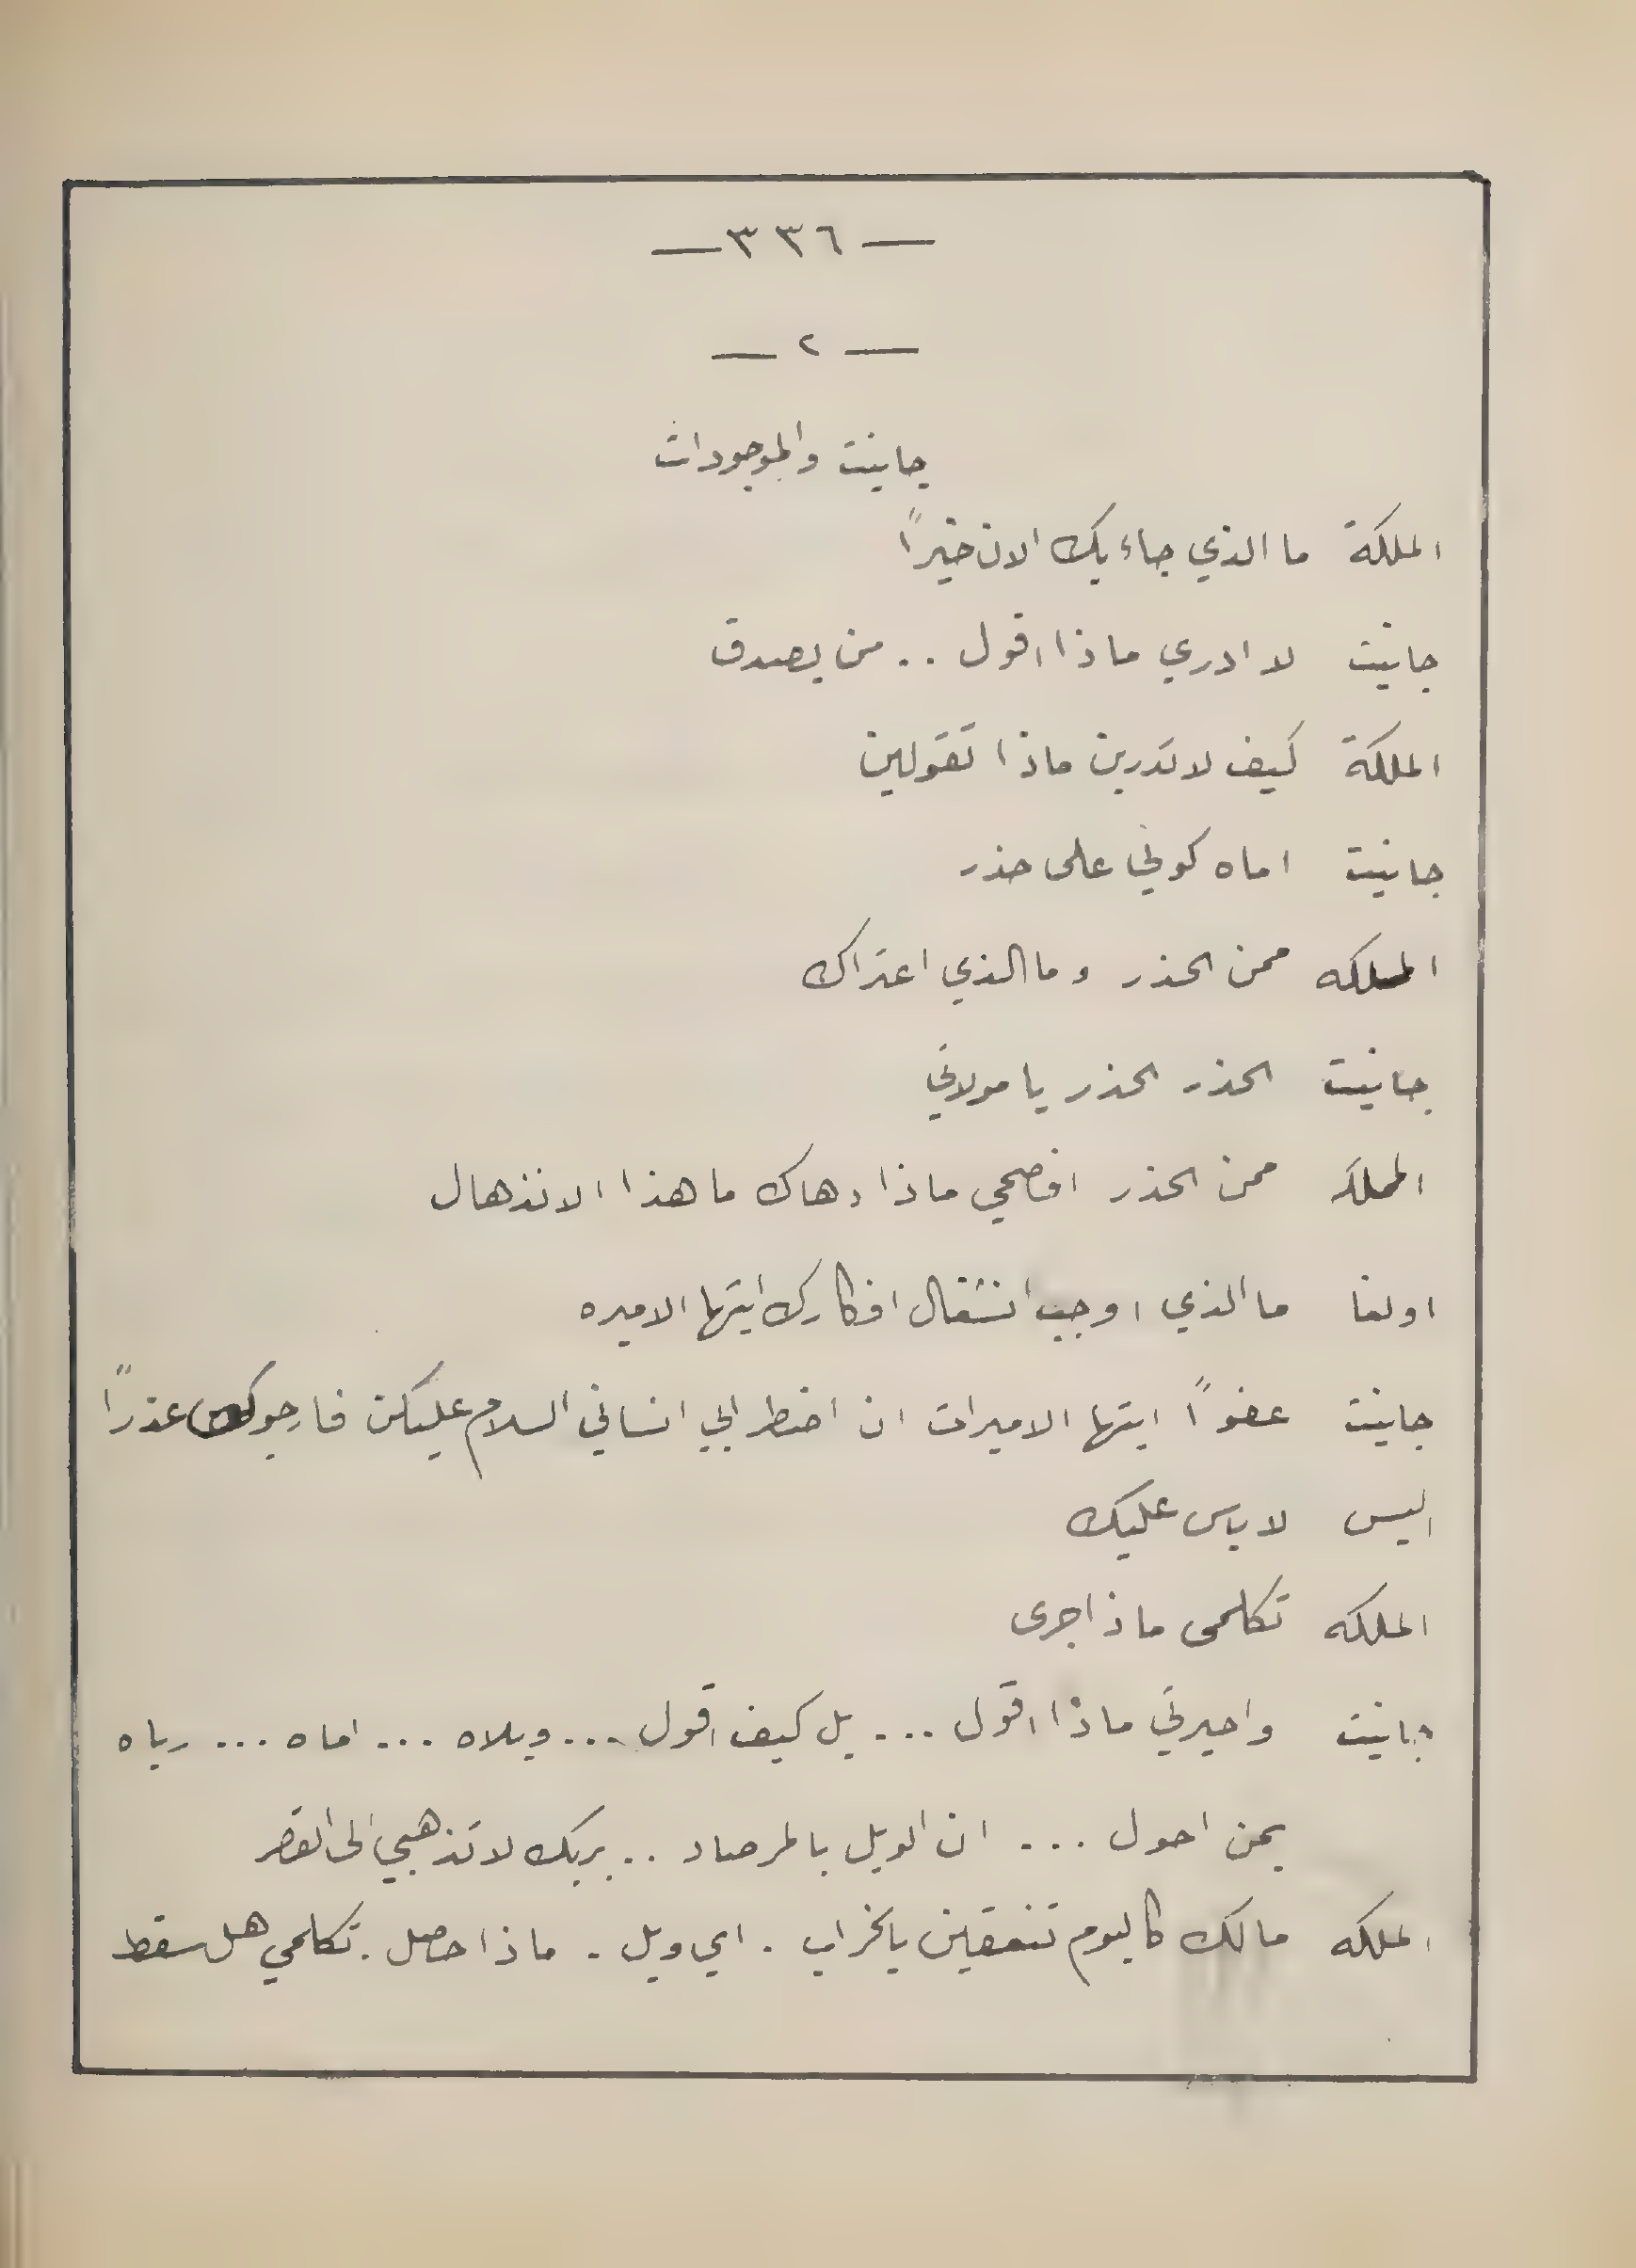 — ٣٣٦ —
— ٢ —
جانيت والموجودات
الملكة ما الذي جاء بك الان خيراً
جانيت لا ادري ماذا اقول .. من يصدق
الملكة كيف لا تدرين ماذا تقولين
جانيت اماه كوني على حذر
الملكه ممن الحذر وما الذي اعتراك
جانيت الحذر الحذر يا مولاتي
الملكة ممن الحذر افصحي ماذا دهاك ما هذا الانذهال
اولغا ما الذي اوجب انشغال افكارك ايتها الاميره
جانيت عفواً ايتها الاميرات ان اضطرابي انساني السلام عليكن فارجوكن عذراً
اليس لا باس عليك
الملكه تكلمى ماذا جرى
جانيت واحيرتي ماذا اقول ... بل كيف اقول ... ويلاه ... اماه ... رباه
بمن احول ... ان الويل بالمرصاد .. بربك لا تذهبي الى القصر
الملكه مالك كاليوم تنعقين بالخراب . اي ويل . ماذا حصل . تكلمي هل سقط